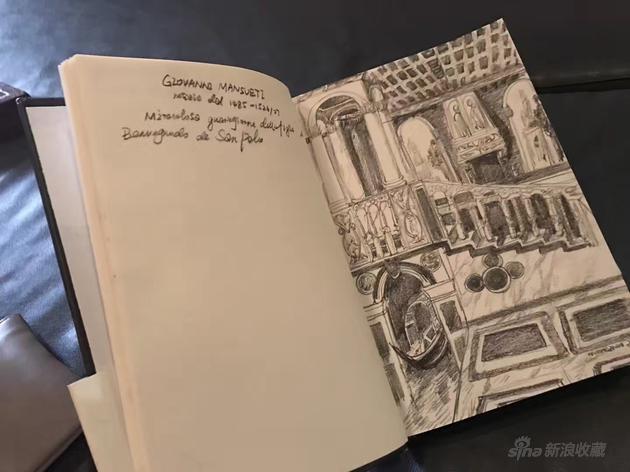 GIOVANNI MANSUETI
dal 1485-
Miracolosa guarigione della figlia
Benvegnudo de San Polo
sina 新浪收藏